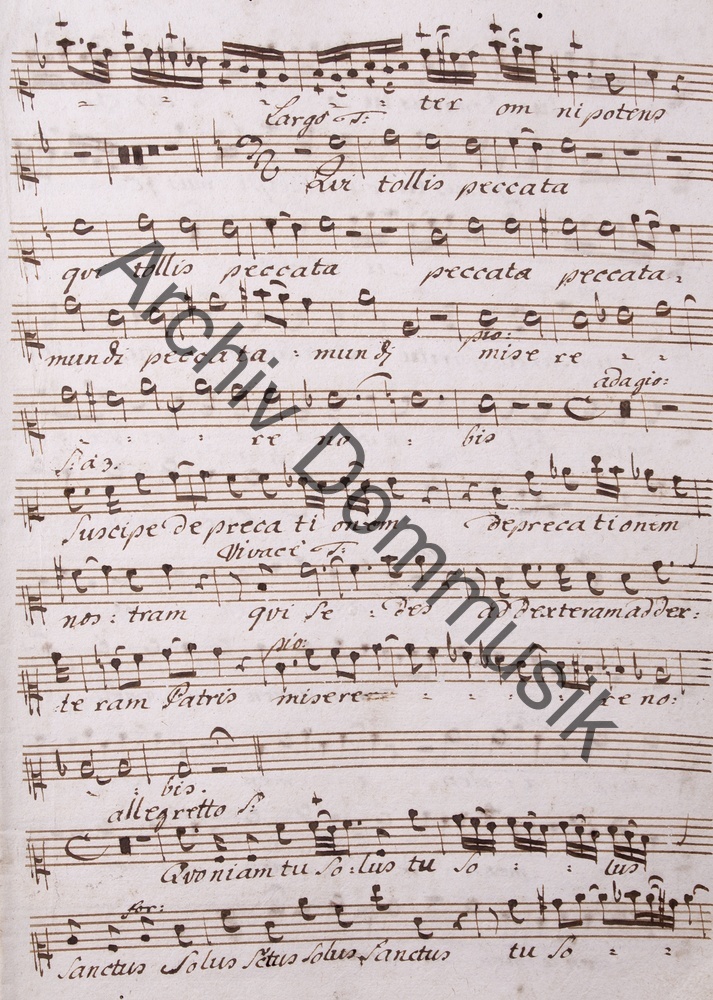 ter omnipotens
Largo T:
Qui tollis peccata
qui tollis peccata peccata peccata
mundi peccata mundi pio: misere
adagio:
re no bis
S: à 3.
Suscipe deprecationem deprecationem
Vivace T:
nos: tram qui Se des ad dexteram ad dex:
pio:
te ram Patris misere re no:
bis.
allegretto S:
Quoniam tu So lus tu So lus
for:
Sanctus Solus Solus Sanctus tu So
Archiv Dommusik